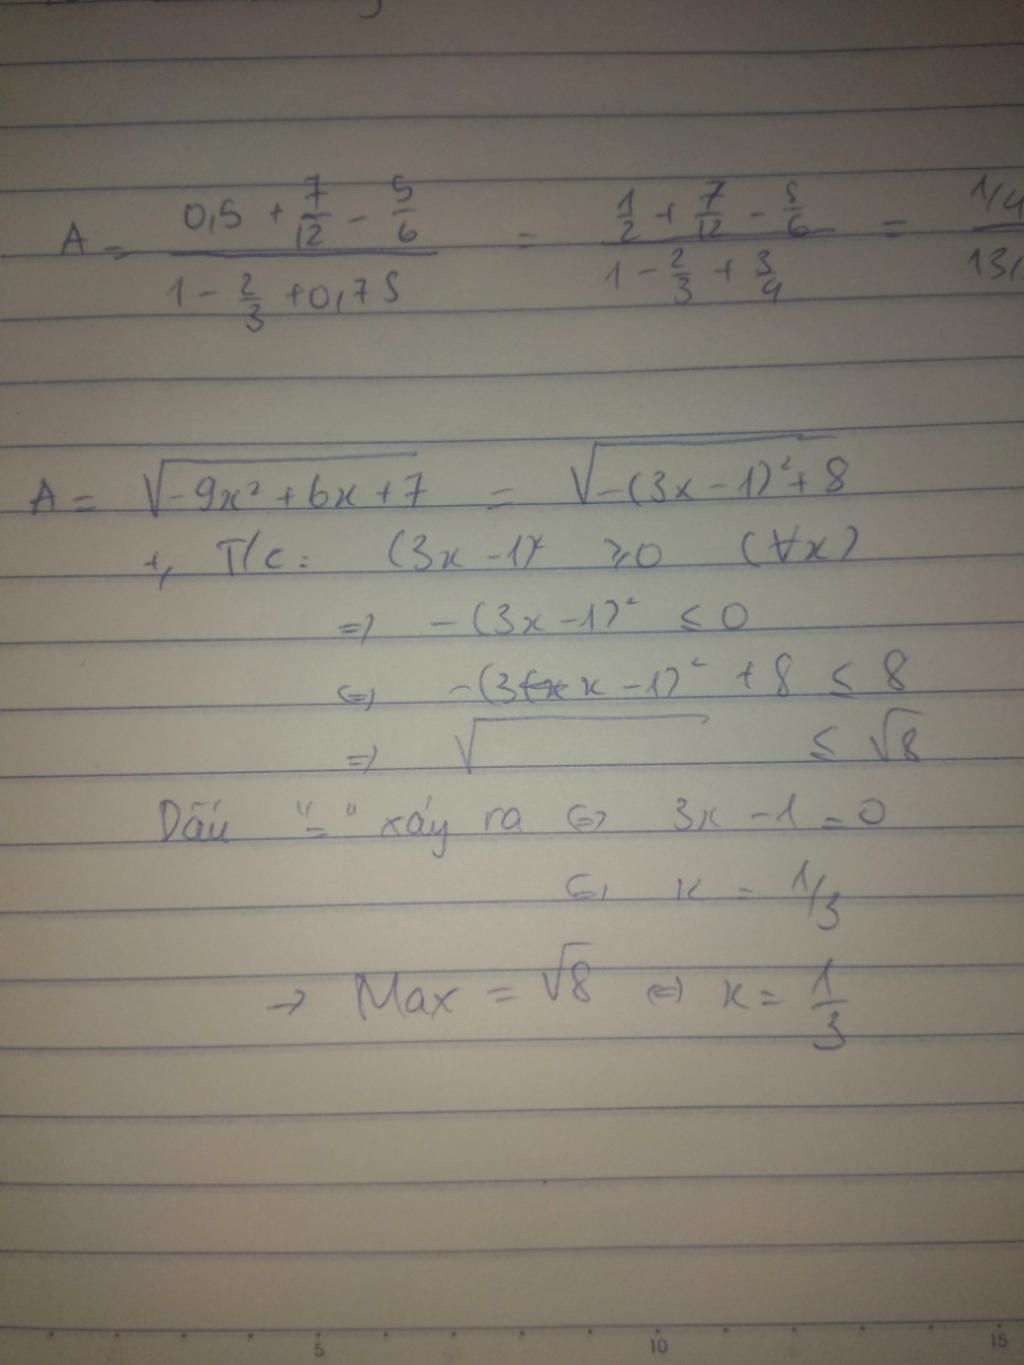 A = (0,5 + 7/12 - 5/6)/(1 - 2/3 + 0,75) = (1/2 + 7/12 - 5/6)/(1 - 2/3 + 3/4) = (1/4)/(13/
A = √(-9x² + 6x + 7) = √(-(3x - 1)² + 8)
+, T/c: (3x - 1)² ≥ 0 (∀x)
=> -(3x - 1)² ≤ 0
<=> -(3x - 1)² + 8 ≤ 8
=> √ ≤ √8
Dấu "=" xảy ra <=> 3x - 1 = 0
<=> x = 1/3
→ Max = √8 <=> x = 1/3
5 10 15